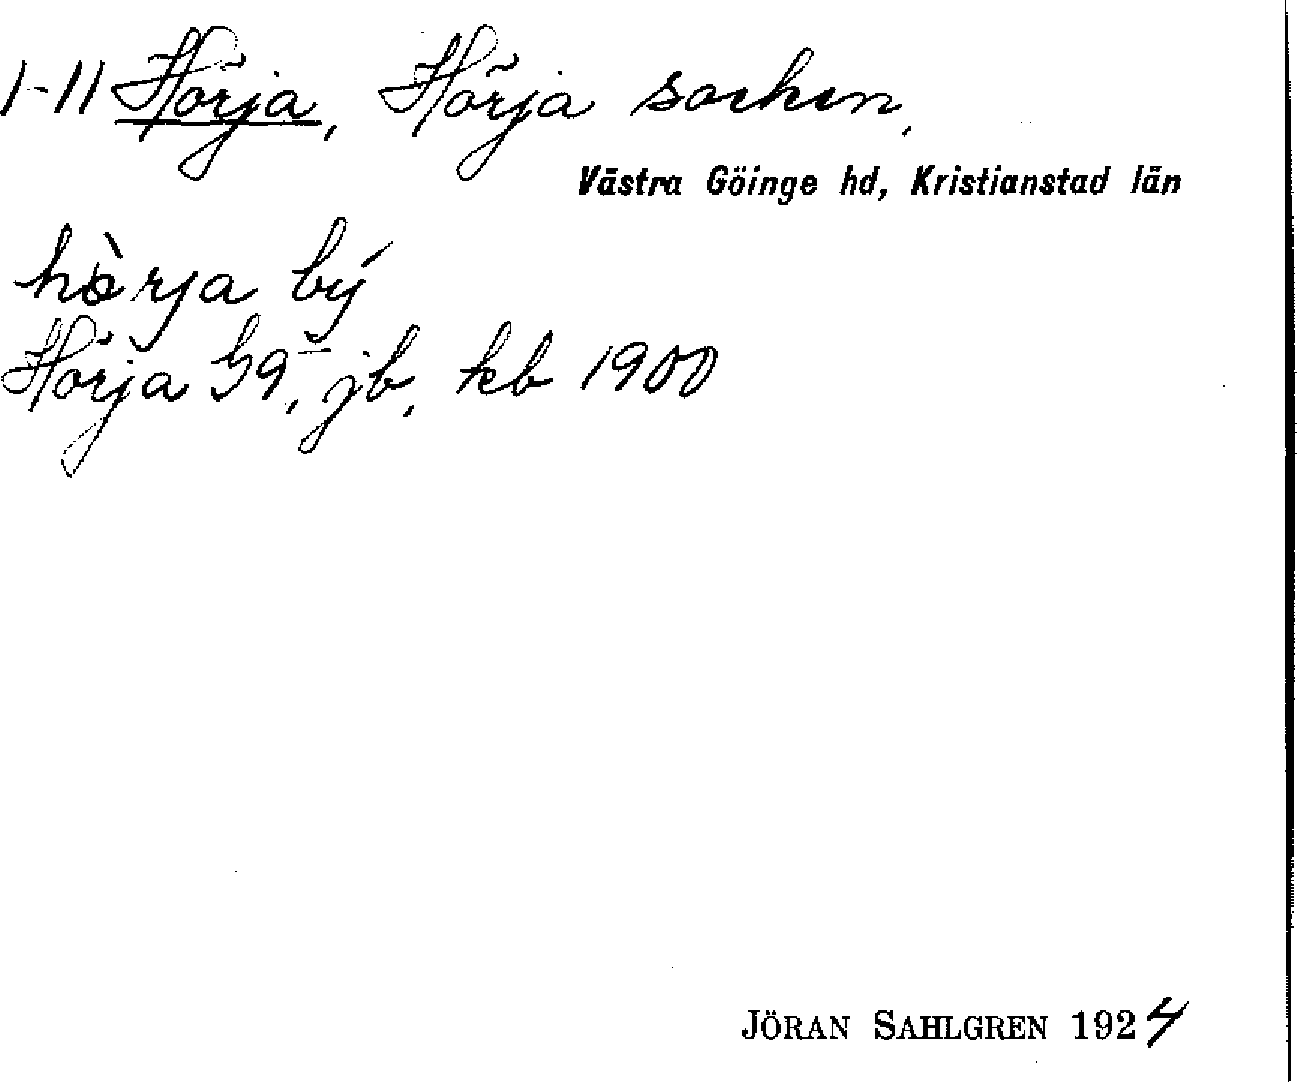 1-11 Hörja, Hörja socken,
Västra Göinge hd, Kristianstad län
hàrja bý
Hörja G9, jb, kb 1900
JÖRAN SAHLGREN 1924